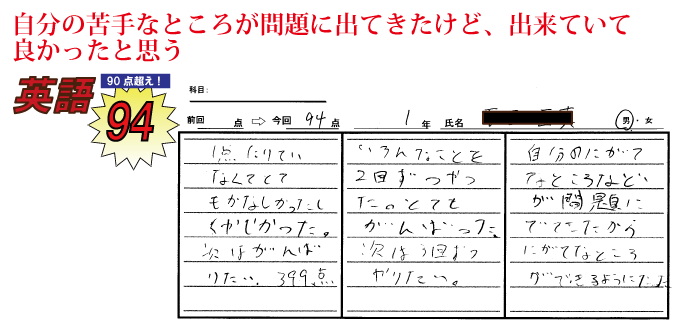 自分の苦手なところが問題に出てきたけど、出来ていて
良かったと思う
英語
90点超え！
94
科目：
前回 点 ⇨ 今回 94 点 1 年 氏名 男・女
1点たりてい
なくてとて
もかなしかったし
くやしかった。
次はがんば
りたい。399点
いろんなことを
2回ずつやっ
た。とても
がんばった。
次は3回ずつ
やりたい。
自分のにがて
なところなどい
が問題に
でてきたから
にがてなところ
ができるようにした